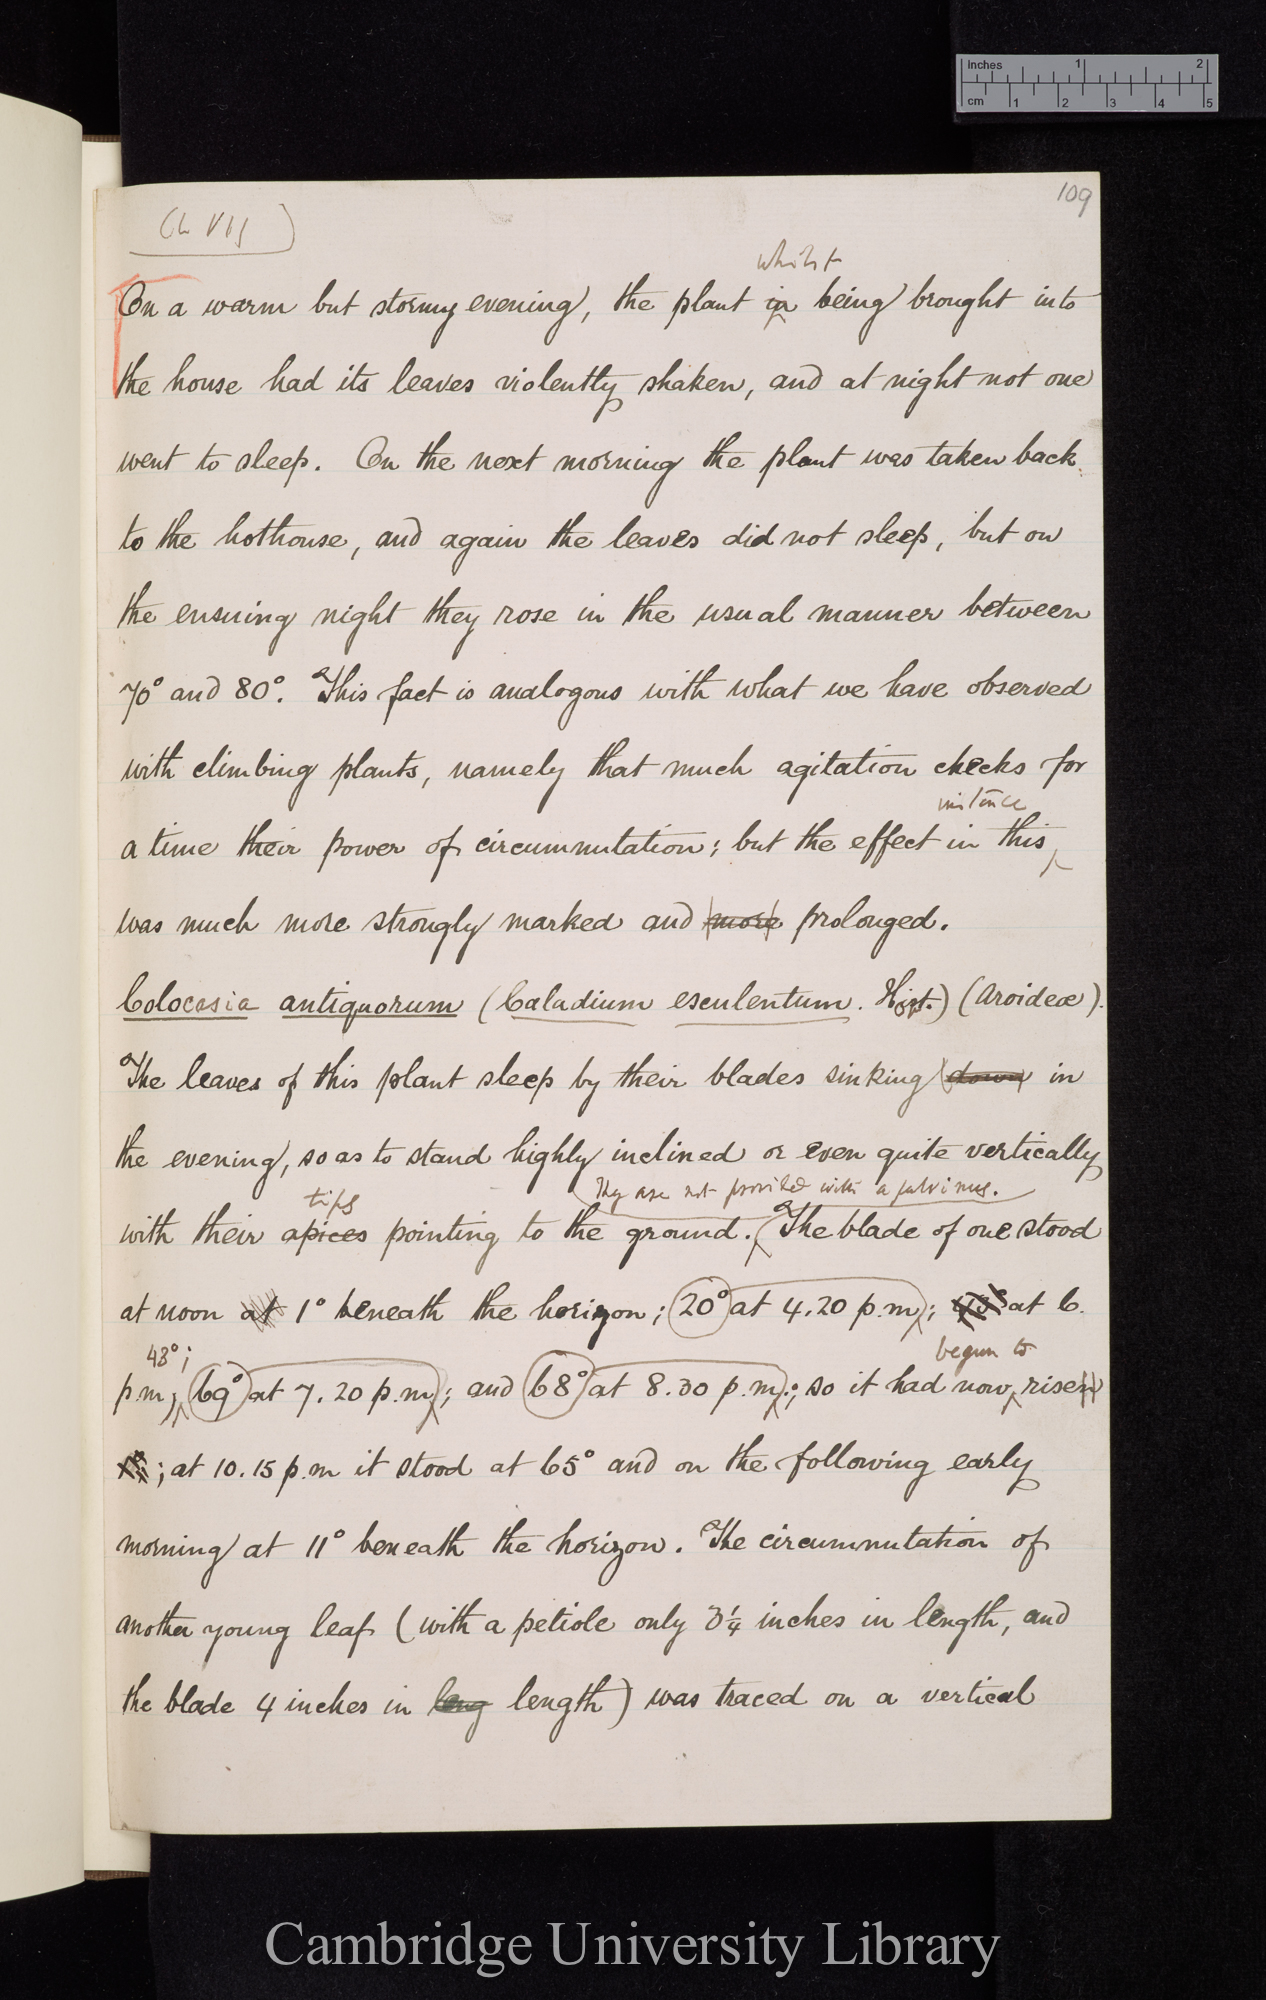 Inches 1 2
cm 1 2 3 4 5
109
(Ch VII)
whilst
On a warm but stormy evening, the plant in being brought into
the house had its leaves violently shaken, and at night not one
went to sleep. On the next morning the plant was taken back
to the hothouse, and again the leaves did not sleep, but on
the ensuing night they rose in the usual manner between
70° and 80°. This fact is analogous with what we have observed
with climbing plants, namely that much agitation checks for
instance
a time their power of circumnutation; but the effect in this
was much more strongly marked and more prolonged.
Colocasia antiquorum (Caladium esculentum. Hort.) (Aroideæ).
The leaves of this plant sleep by their blades sinking down in
the evening, so as to stand highly inclined or even quite vertically
tips They are not provided with a pulvinus.
with their apices pointing to the ground. The blade of one stood
at noon at 1° beneath the horizon; 20° at 4.20 p.m; 43° at 6.
43°; begun to
p.m; 69° at 7.20 p.m; and 68° at 8.30 p.m.; so it had now risen
; at 10.15 p.m it stood at 65° and on the following early
morning at 11° beneath the horizon. The circumnutation of
another young leaf (with a petiole only 3¼ inches in length, and
the blade 4 inches in leng length) was traced on a vertical
Cambridge University Library